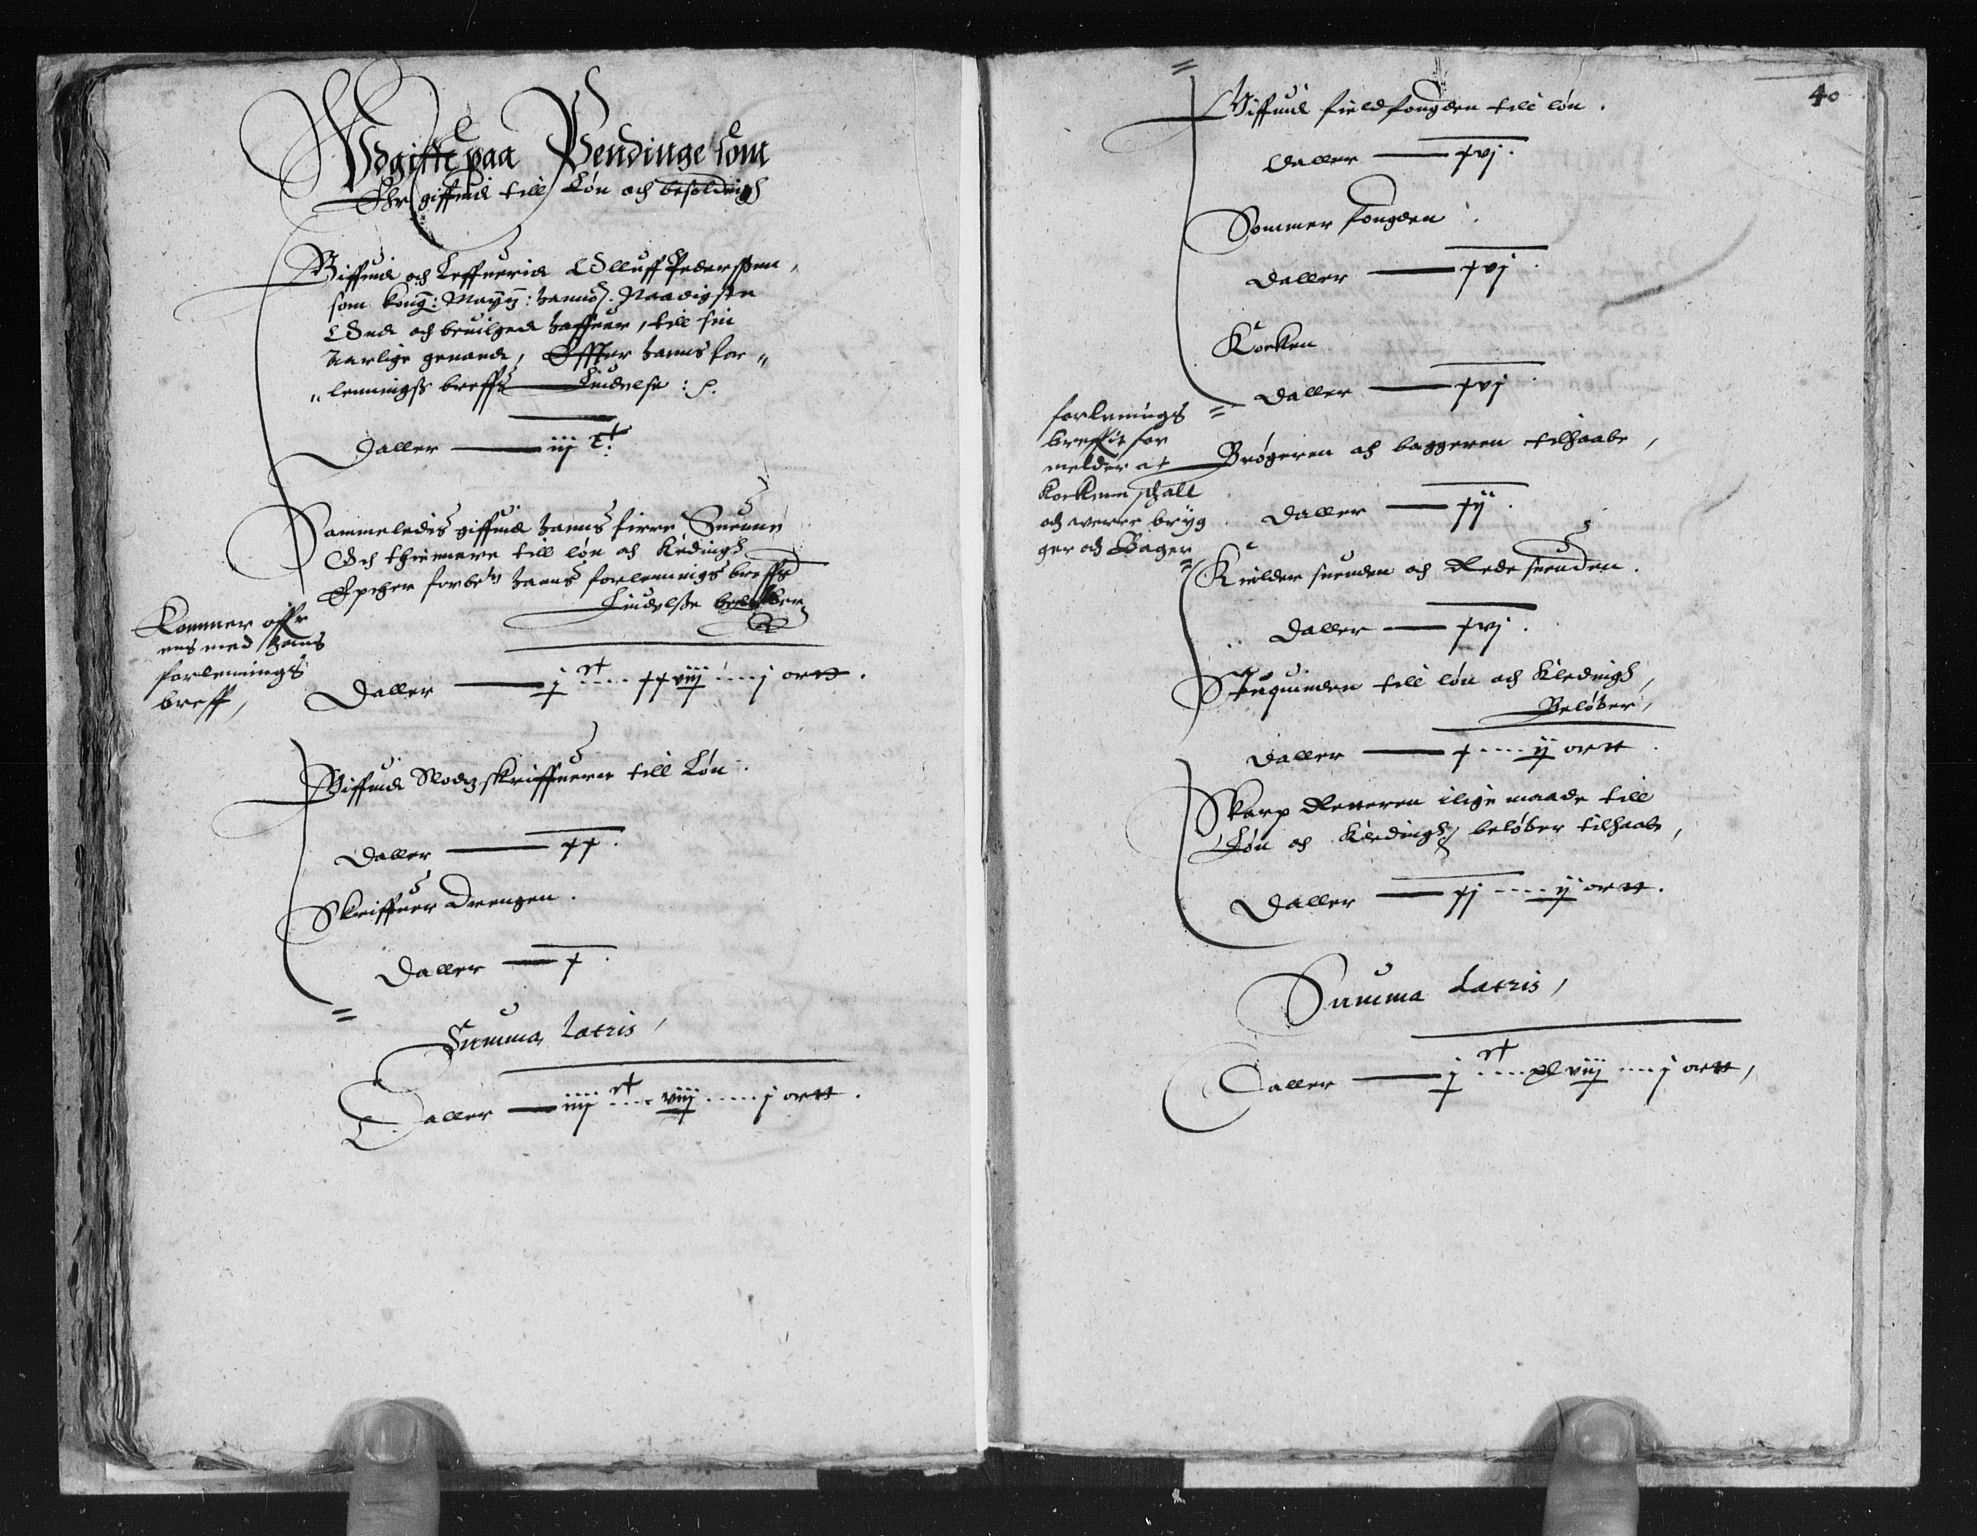 Vdgifft paa Pendinge som
Ehr giffued till Løn och besolding
Giffuid och Leffuerid Olluff Pederssen,
som kong: Maytt: hannss Naadigste
Ord och beuilged haffuer, till sin
Aarlige genandt, Effter hanns for„
„lenningss breffs Liudelse :/.
Daller —— iij c
Sammeledis giffuid hanns firre Suenne
Och thiennere till løn och kleding
Epther forbete hanns forlennings breffs
Liudelsse beløber
Kommer offr
ens med hans
forlennings
breff,
Daller —— j c .... xxviij .... j ortt.
Giffuid Slodz skriffueren till Løn.
Daller —— xx.
Skriffuer Drengen.
Daller —— x.
Summa Latris,
Daller —— iiij c .... viij ..... j ortt.
40
Giffuid fieldfougden till løn.
Daller —— xvj.
Sommer fougden.
Daller —— xvj
Kocken
Daller —— xvj
forlenings
breffit for
melder at
Kockenn schall
och werre bryg
ger och Bager
Brøgeren och baggeren tilhaabe,
Daller —— xij.
Kielder suenden och Rede suenden.
Daller —— xvj.
Stuequinden till løn och Kleding,
Beløber,
Daller —— x .... ij ortt.
Skarp Retteren ilige maade till
Løn och Kleding, beløber tilhaabe,
Daller —— xj .... ij ortt.
Summa Latris,
Daller —— j c .... xlviij .... j ortt,